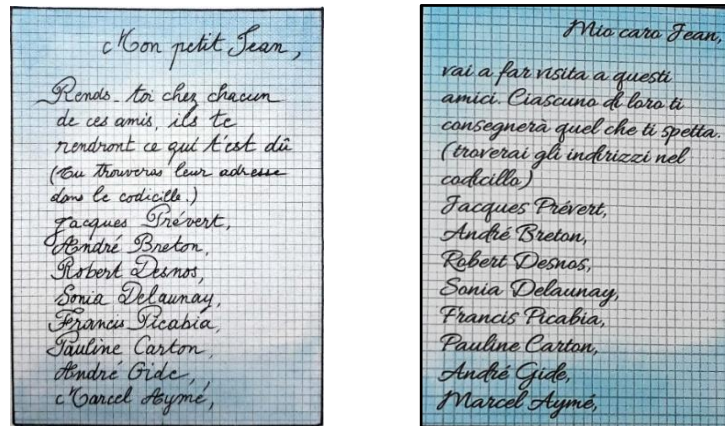 Mon petit Jean,
Rends-toi chez chacun
de ces amis, ils te
rendront ce qui t'est dû
(Tu trouveras leur adresse
dans le codicille.)
Jacques Prévert,
André Breton,
Robert Desnos,
Sonia Delaunay,
Francis Picabia,
Pauline Carton,
André Gide,
Marcel Aymé,
Mio caro Jean,
vai a far visita a questi
amici. Ciascuno di loro ti
consegnerà quel che ti spetta.
(troverai gli indirizzi nel
codicillo)
Jacques Prévert,
André Breton,
Robert Desnos,
Sonia Delaunay,
Francis Picabia,
Pauline Carton,
André Gide,
Marcel Aymé,